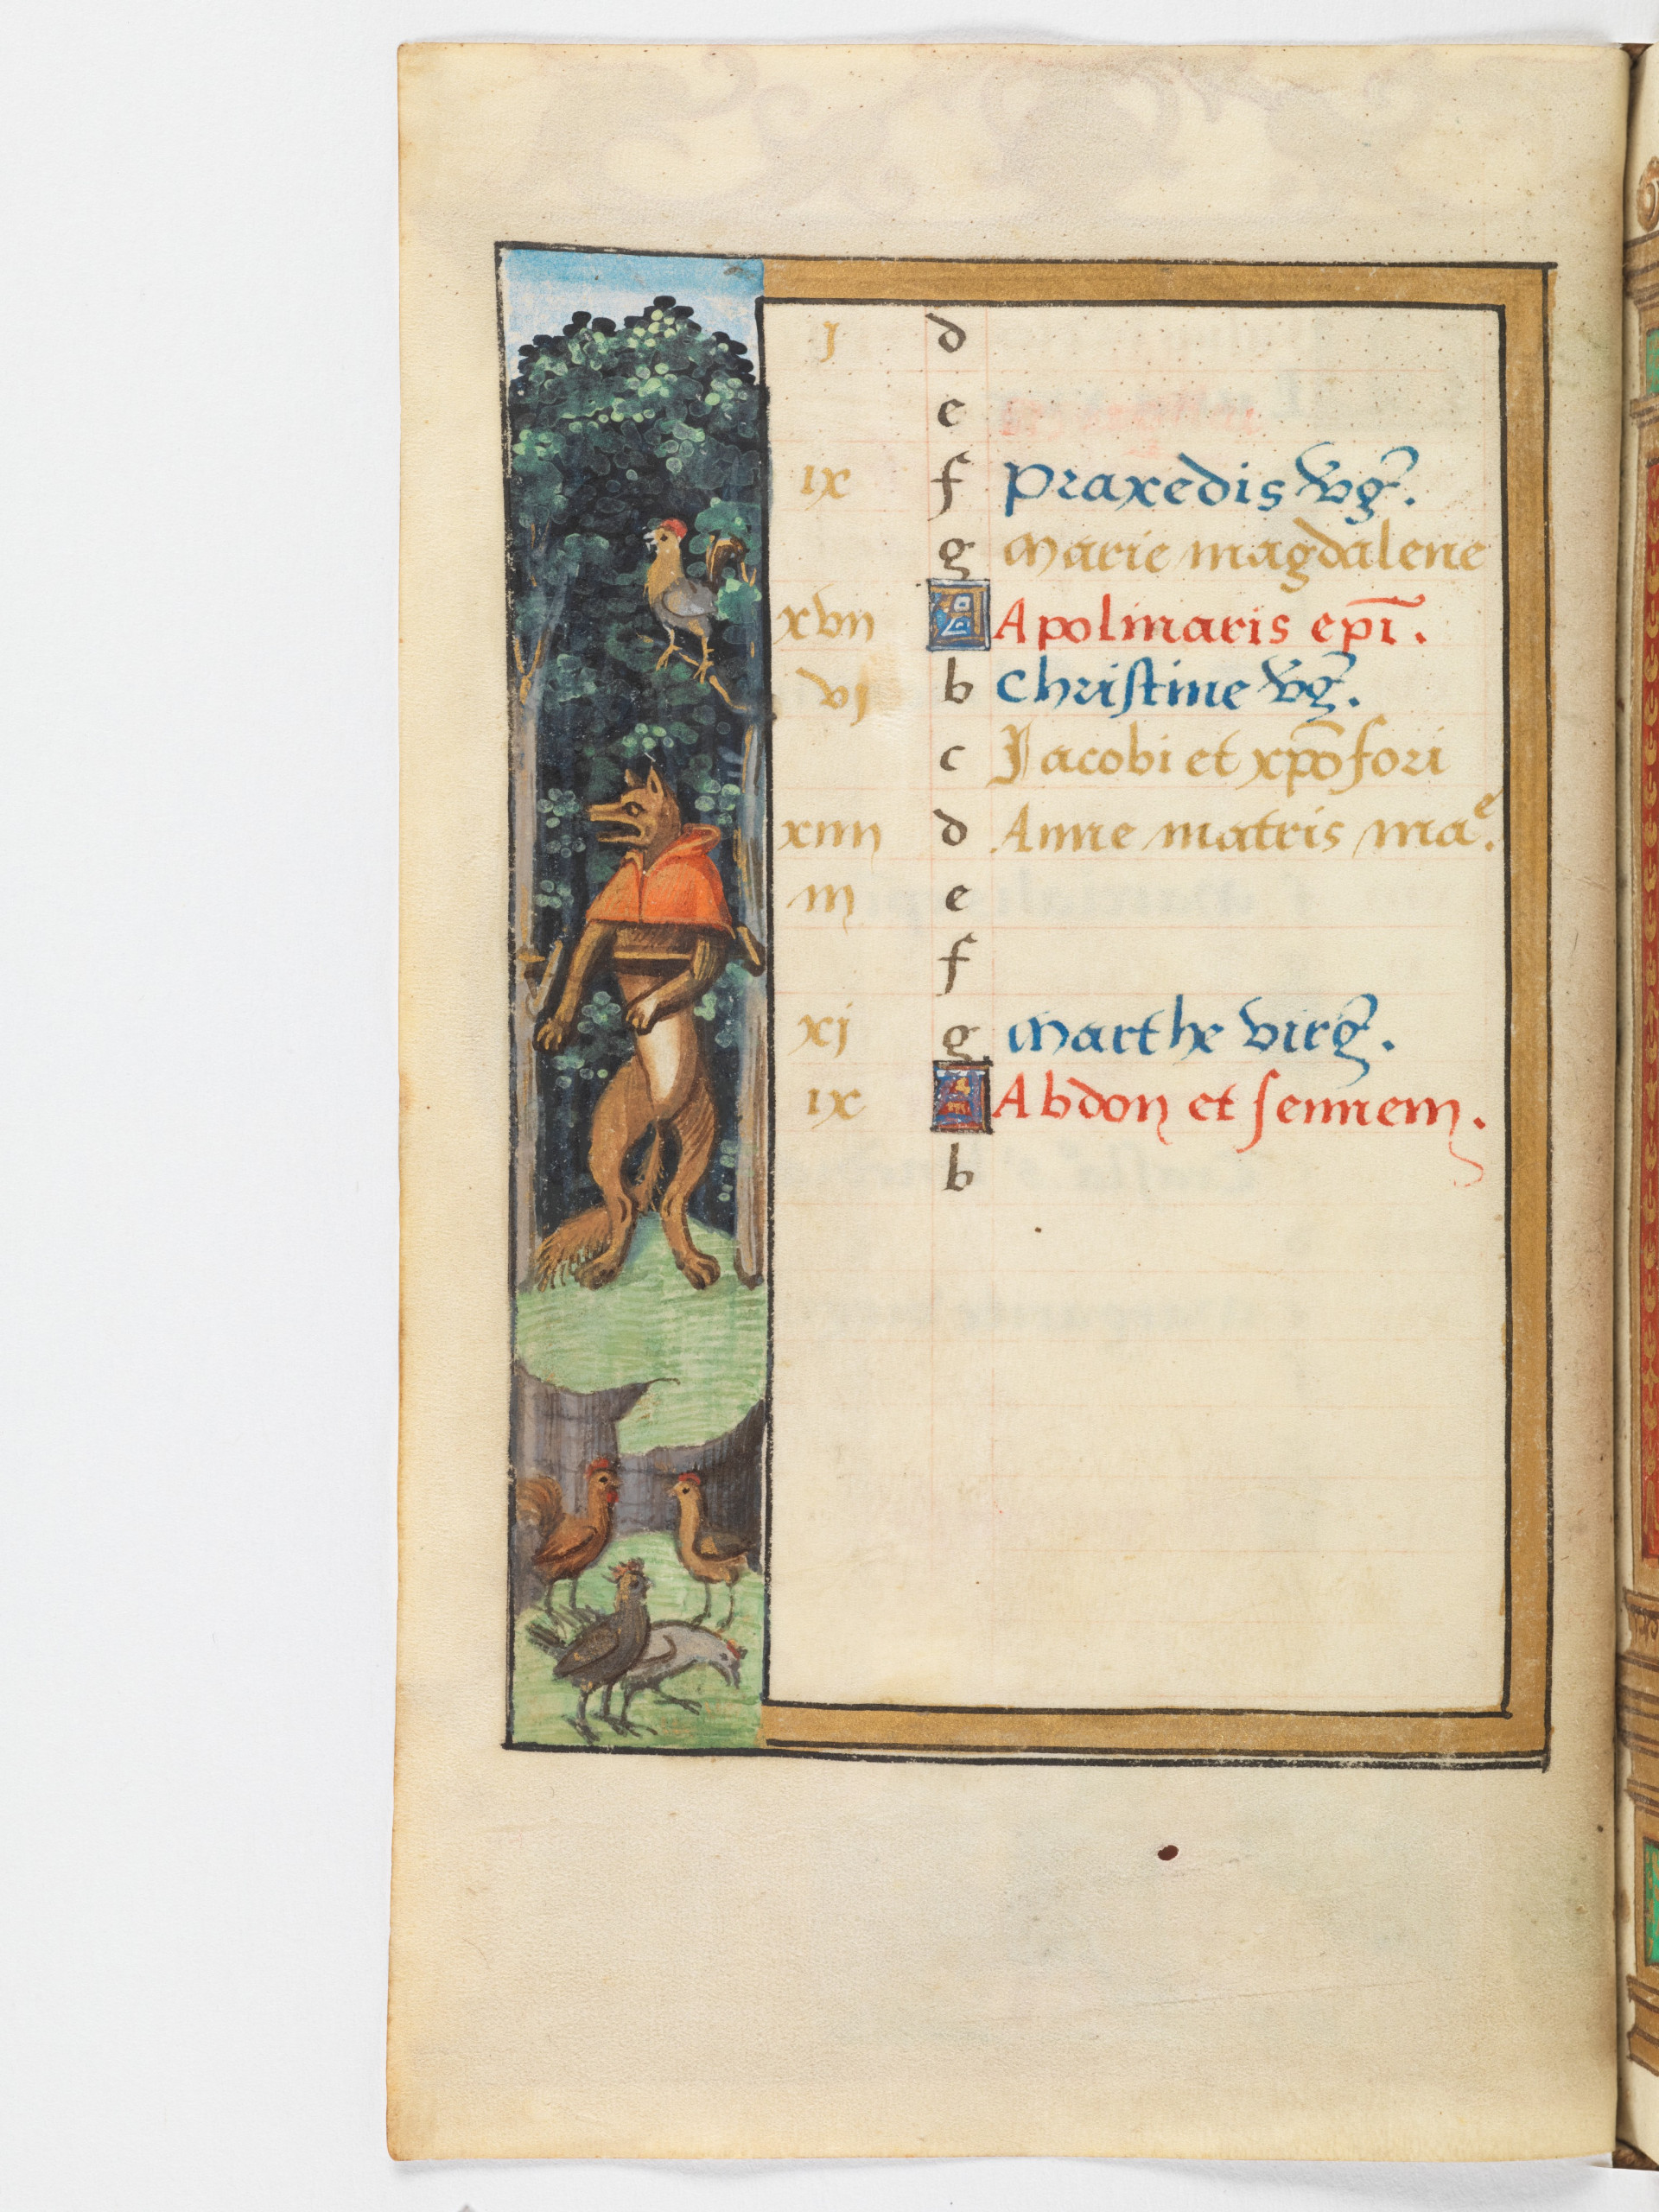 j d
e
ix f Praxedis vg̃.
g Marie magdalene
xvij A Apolinaris ep̃i.
vj b Christine vg̃.
c Jacobi et xp̃ofori
xiiij d Anne matris maᵉ.
iij e
f
xj g Marthe virg̃.
ix A Abdon et sennem.
b